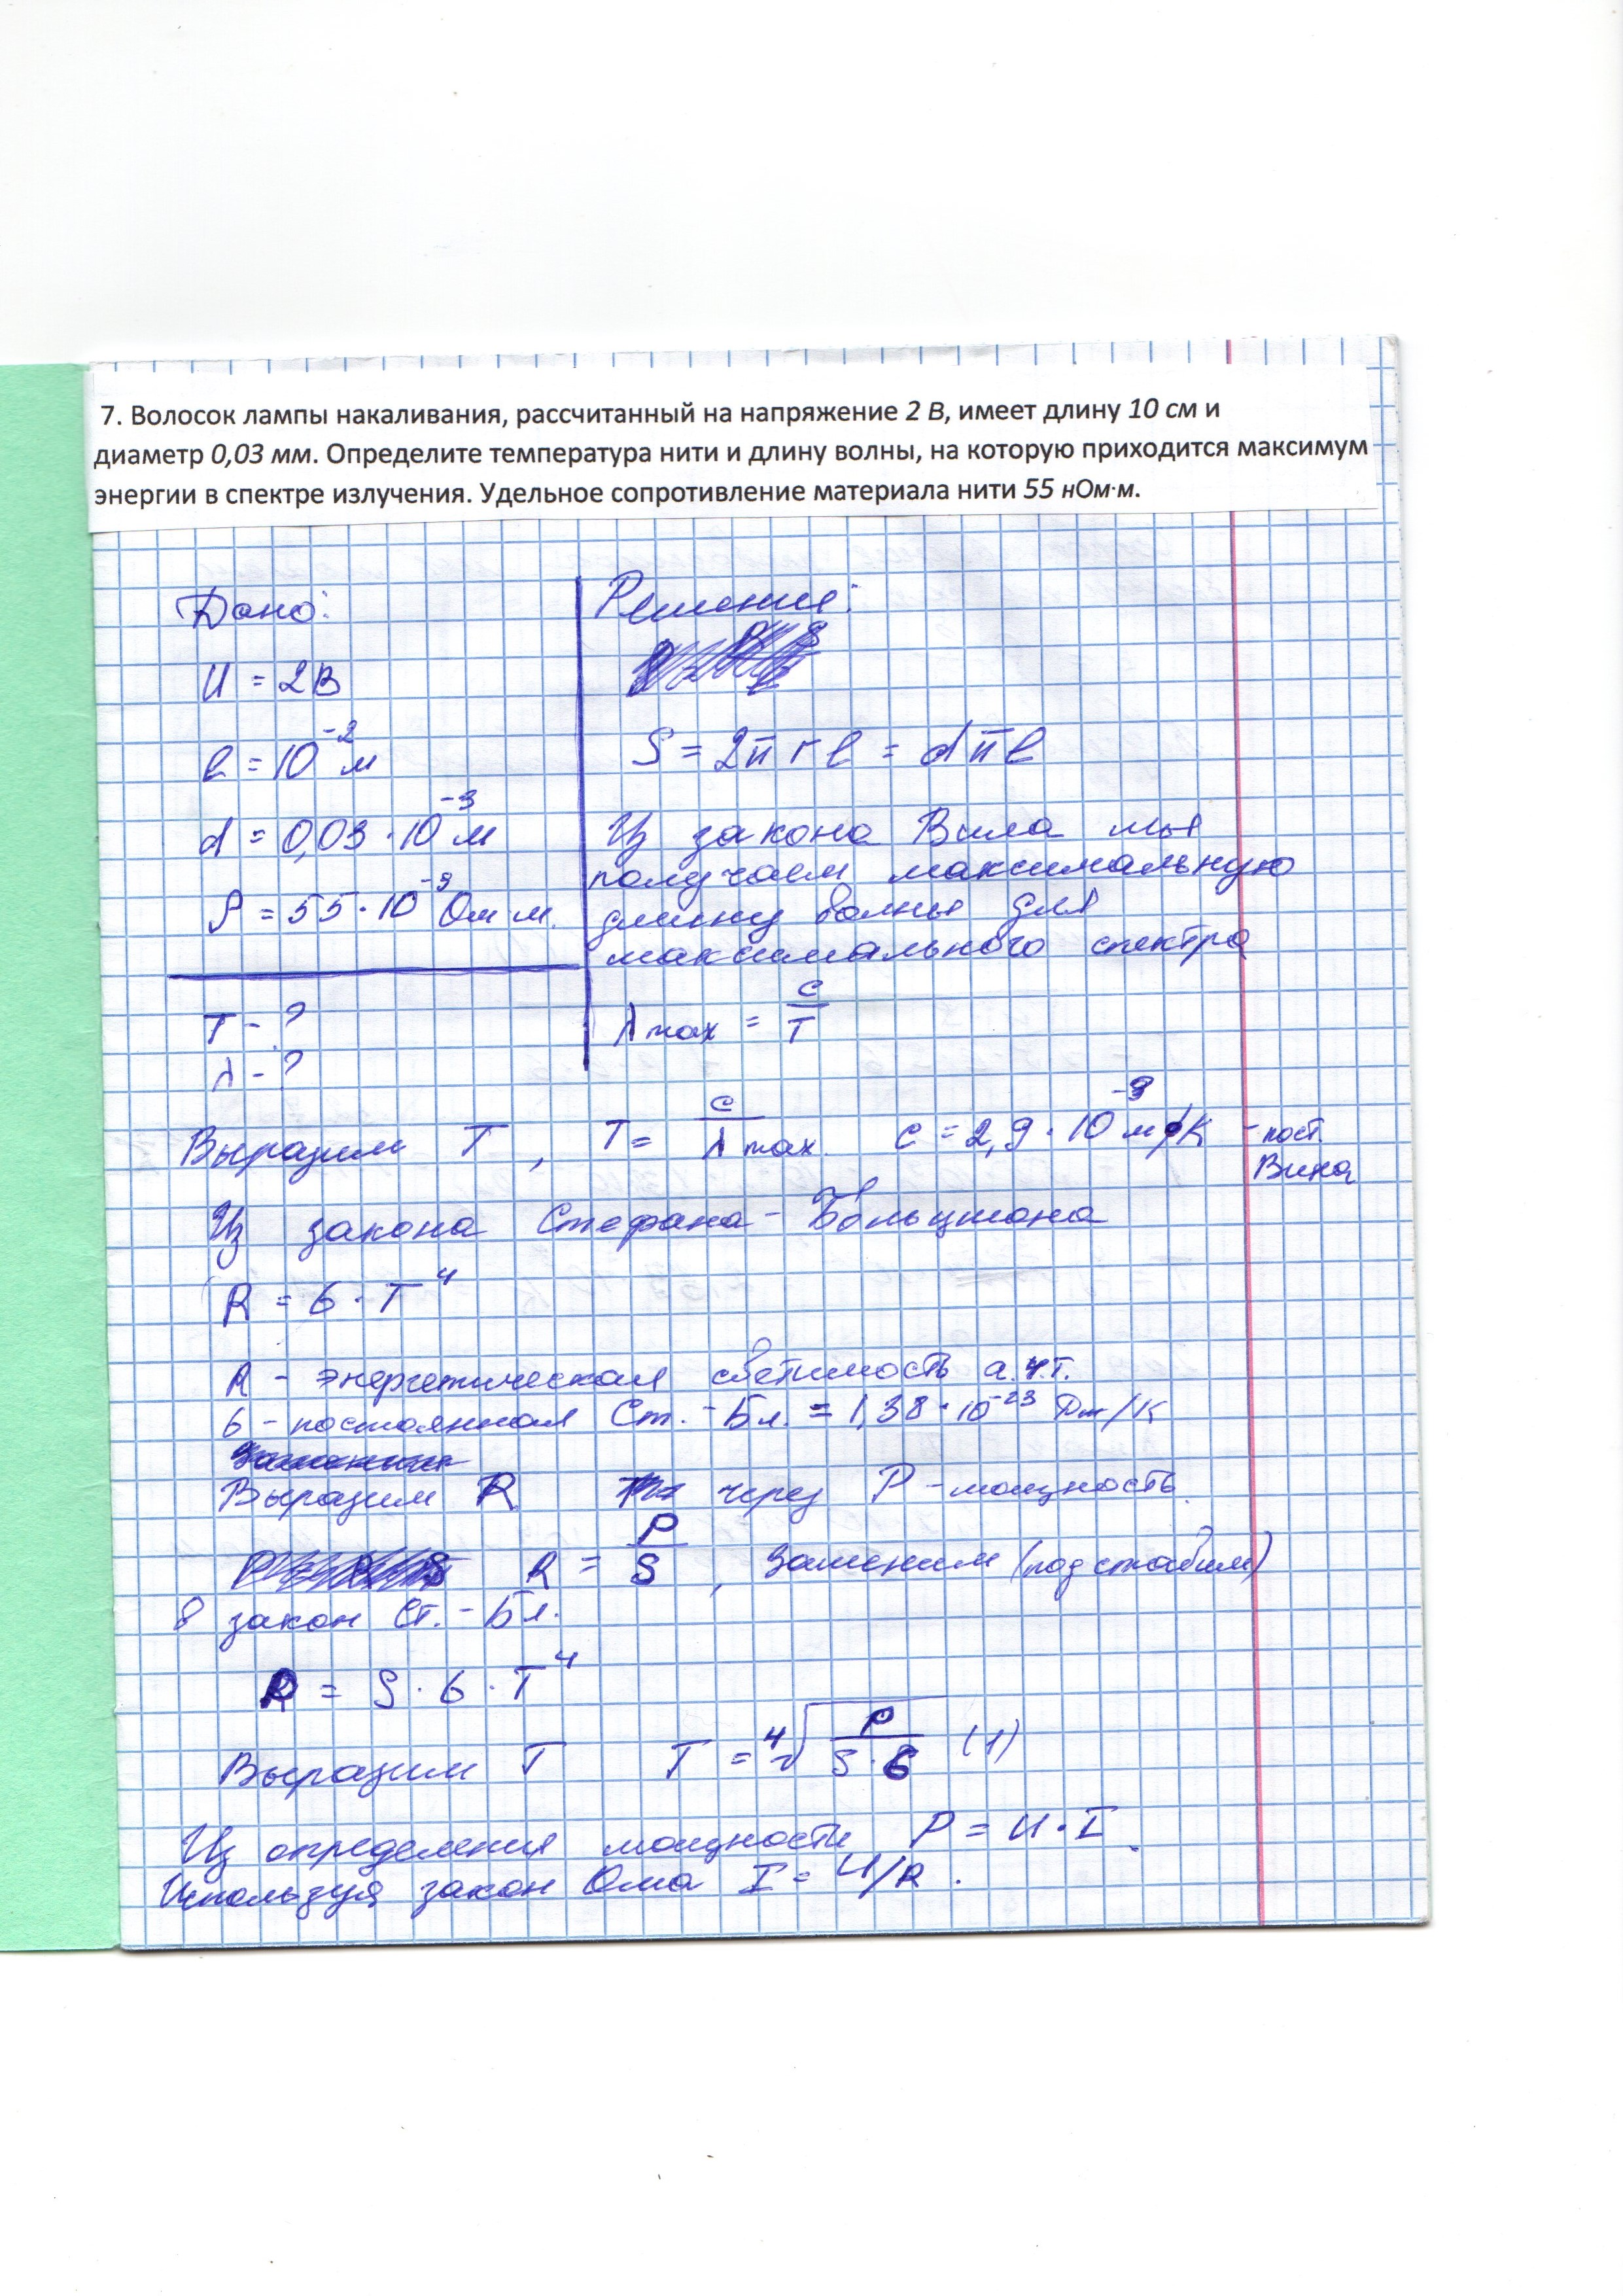 7. Волосок лампы накаливания, рассчитанный на напряжение 2 В, имеет длину 10 см и
диаметр 0,03 мм. Определите температура нити и длину волны, на которую приходится максимум
энергии в спектре излучения. Удельное сопротивление материала нити 55 нОм·м.
Дано:
U = 2В
l = 10⁻² м
d = 0,03 · 10⁻³ м
ρ = 55 · 10⁻⁹ Ом м.
T - ?
λ - ?
Решение:
S = 2πrl = dπl
Из закона Вина мы
получаем максимальную
длину волны для
максимального спектра
λ max = c/T
Выразим T, T = c/λ max. c = 2,9 · 10⁻³ м·К - пост.
Вина
Из закона Стефана - Больцмана
R = б · T⁴
R - энергетическая светимость а.ч.т.
б - постоянная Ст. - Бл. = 1,38 · 10⁻²³ Дж/К
Выразим R через P - мощность.
R = P/S, заменим (подставим)
в закон Ст. - Бл.
P = S · б · T⁴
Выразим T T = ⁴√(P/(S · б)) (1)
Из определения мощности P = U · I.
Используя закон Ома I = U/R.